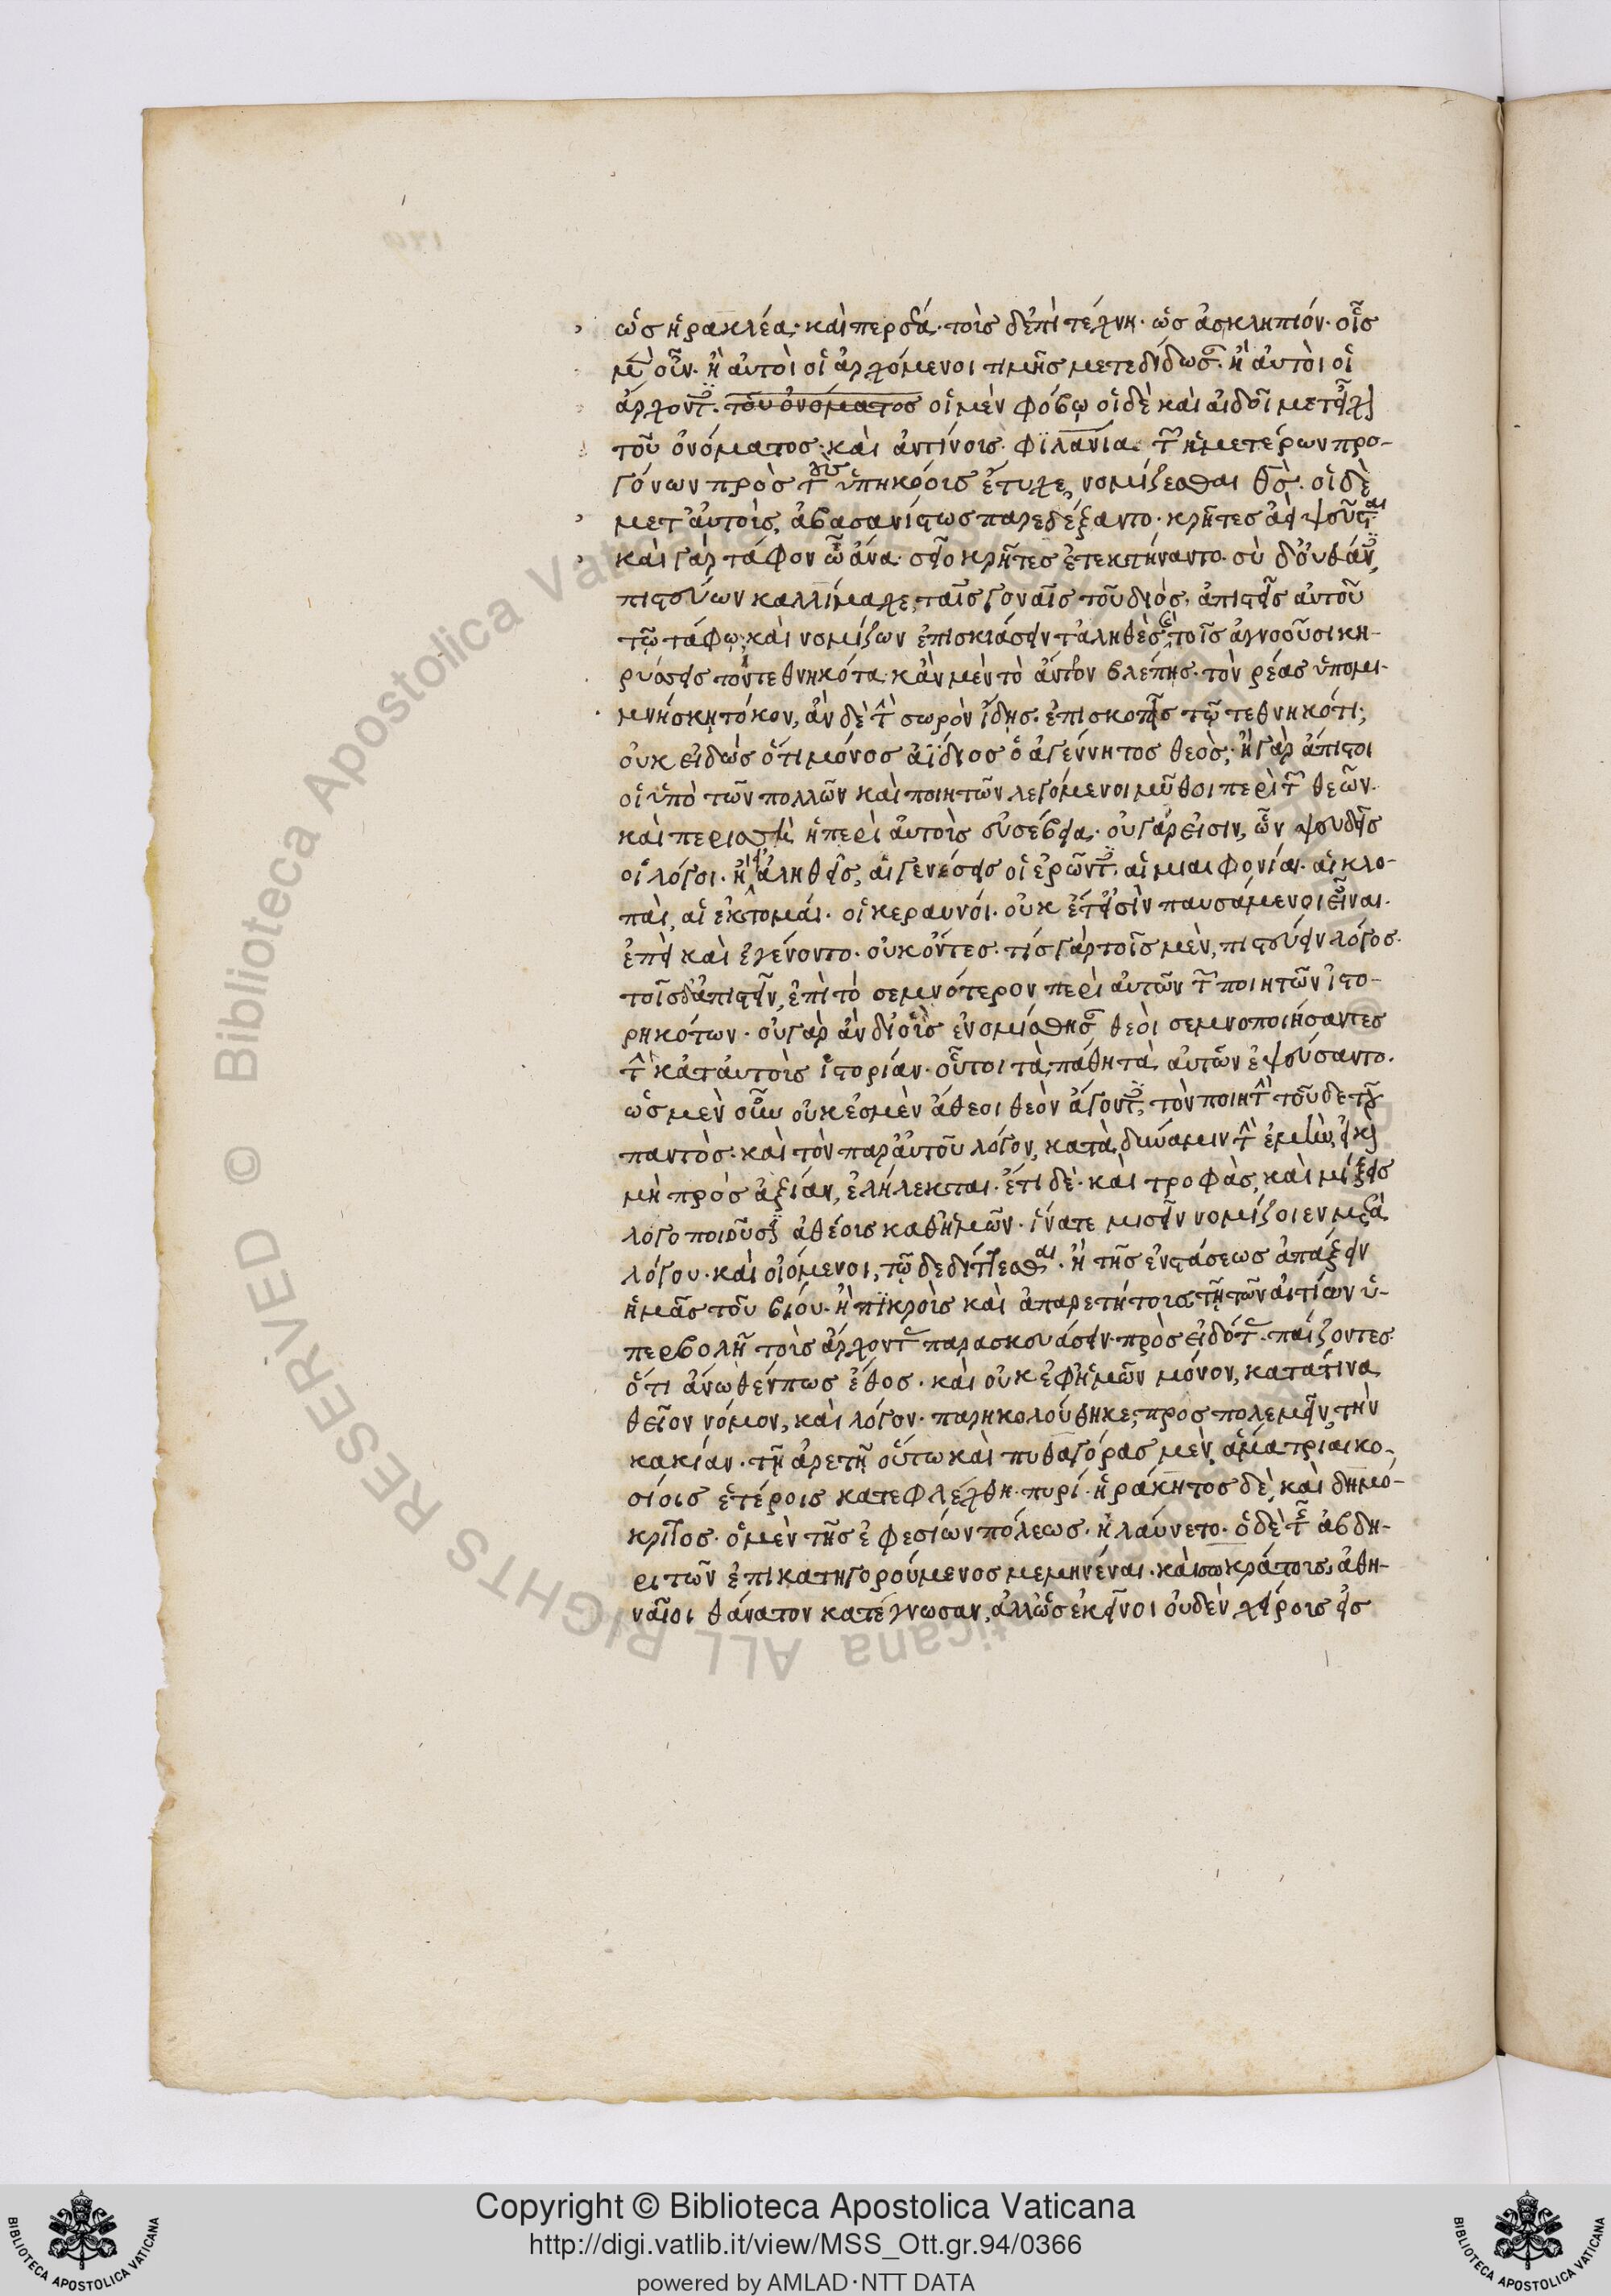 ὡς ἡρακλέα· καὶ περσέα· τοῖς δ' ἐπὶ τέχνη· ὡς ἀσκληπιόν· οἷς
μὲν οὖν· ἢ αὐτοὶ οἱ ἀρχόμενοι τιμῆς μετεδίδωσαν· ἢ αὐτοὶ οἱ
ἄρχοντες· τοῦ ὀνόματος οἱ μὲν φόβῳ οἱ δὲ καὶ αἰδοῖ μετεῖχον
τοῦ ὀνόματος· καὶ ἀντίνους φιλανία τῶν ἡμετέρων προ-
γόνων πρὸς τοὺς ὑπηκόους ἔτυχε, νομίζεσθαι θεός· οἱ δὲ
μετ' αὐτοὺς, ἀβασανίστως παρεδέξαντο· κρῆτες ἀεὶ ψεῦσται
καὶ γὰρ τάφον ὦ ἄνα· σεῖο κρῆτες ἐτεκτήναντο· σὺ δ' οὐ θάνες,
πιστεύων καλλίμαχε, ταῖς γοναῖς τοῦ διός, ἀπιστεῖς αὐτοῦ
τῷ τάφῳ· καὶ νομίζων ἐπισκιάσειν τἀληθὲς, τοῖς ἀγνοοῦσι κη-
ρύσσεις τὸν τεθνηκότα· κἂν μὲν τὸ ἄντρον βλέπῃς· τὸν ῥέας ὑπομι-
μνήσκῃ τόκον, ἂν δὲ τὴν σωρὸν ἴδῃς· ἐπισκοτεῖς τῷ τεθνηκότι;
οὐκ εἰδὼς ὅτι μόνος ἀΐδιος ὁ ἀγέννητος θεός; ἢ γὰρ ἄπιστοι
οἱ ὑπὸ τῶν πολλῶν καὶ ποιητῶν λεγόμενοι μῦθοι περὶ τῶν θεῶν·
καὶ περισσὴ ἡ περὶ αὐτοὺς εὐσέβεια· οὐ γάρ εἰσιν, ὧν ψευδεῖς
οἱ λόγοι· ἢ εἰ ἀληθεῖς, αἱ γενέσεις οἱ ἐρῶντες· αἱ μιαιφονίαι· αἱ κλο-
παὶ, αἱ ἐκτομαί· οἱ κεραυνοί· οὐκ ἔτ' εἰσὶν παυσάμενοι εἶναι·
ἐπεὶ καὶ ἐγένοντο· οὐκ ὄντες· τίς γὰρ τοῖς μὲν, πιστεύειν λόγος·
τοῖς δ' ἀπιστεῖν, ἐπὶ τὸ σεμνότερον περὶ αὐτῶν τῶν ποιητῶν ἱστο-
ρηκότων· οὐ γὰρ ἂν δι' οὓς ἐνομίσθησαν θεοὶ σεμνοποιήσαντες
τὴν κατ' αὐτοὺς ἱστορίαν· οὗτοι τὰ πάθη τὰ αὐτῶν ἐψεύσαντο·
ὡς μὲν οὖν οὐκ ἐσμὲν ἄθεοι θεὸν ἄγοντες, τὸν ποιητὴν τοῦδε τοῦ
παντός· καὶ τὸν παρ' αὐτοῦ λόγον, κατὰ δύναμιν τὴν ἐμὴν, εἰ καὶ
μὴ πρὸς ἀξίαν, ἐλήλεκται· ἔτι δὲ· καὶ τροφὰς, καὶ μίξεις
λογοποιοῦσιν ἀθέους καθ' ἡμῶν· ἵνα τε μισεῖν νομίζοιεν μετὰ
λόγου· καὶ οἰόμενοι, τῷ δεδίττεσθαι· ἢ τῆς ἐνστάσεως ἀπάξειν
ἡμᾶς τοῦ βίου· ἢ πικροὺς καὶ ἀπαρετήτους τῇ τῶν αἰτιῶν ὑ-
περβολῇ τοὺς ἄρχοντας παρασκευάσειν· πρὸς εἰδότας· παίζοντες
ὅτι ἄνωθέν πως ἔθος· καὶ οὐκ ἐφ' ἡμῶν μόνον, κατά τινα
θεῖον νόμον, καὶ λόγον· παρηκολούθηκε, προσπολεμεῖν, τὴν
κακίαν· τῇ ἀρετῇ οὕτω καὶ πυθαγόρας μὲν, ἅμα τριακο-
σίοις ἑτέροις κατεφλέχθη· πυρί· ἡράκλητος δὲ, καὶ δημό-
κριτος· ὁ μὲν τῆς ἐφεσίων πόλεως· ἠλαύνετο· ὁ δὲ τῆς ἀβδη-
ριτῶν ἐπικατηγορούμενος μεμηνέναι· καὶ σωκράτους, ἀθη-
ναῖοι θάνατον κατέγνωσαν, ἀλλ' ὡς ἐκεῖνοι οὐδὲν χείρους εἰς
Copyright © Biblioteca Apostolica Vaticana
http://digi.vatlib.it/view/MSS_Ott.gr.94/0366
powered by AMLAD·NTT DATA